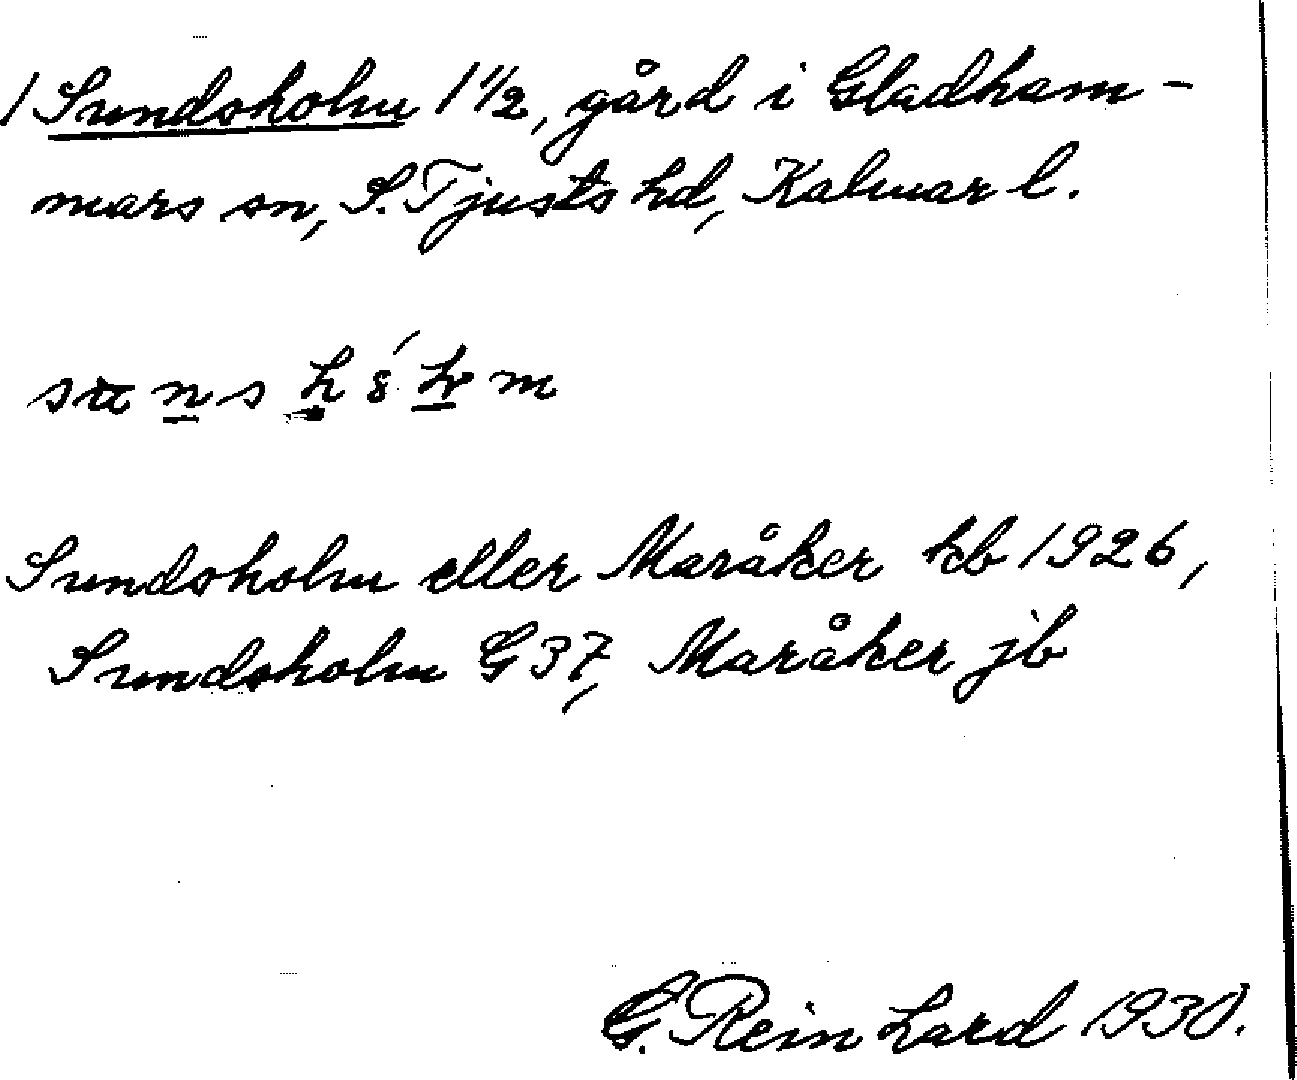 / Sundsholm 1 1/2, gård i Gladham-
mars sn, S. Tjusts hd, Kalmar l.
Sundsholm eller Maråker kb 1926,
Sundsholm G 37, Maråker jb
G. Reinhard 1930.